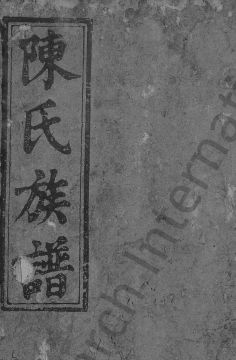 陳氏族譜
rch Internati